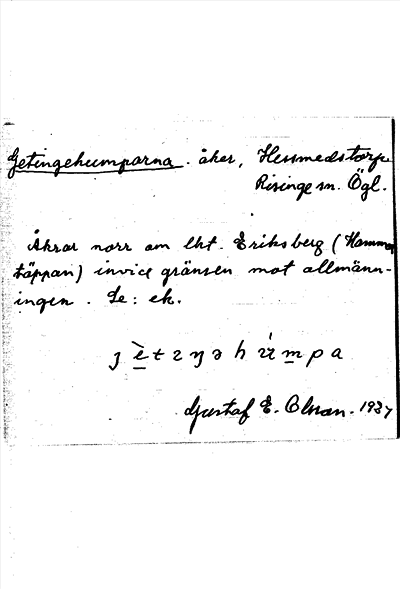 Getingehumparna. åker, Hessmedstorp
Risinge sn. Ögl.
Åkrar norr om lht. Eriksberg (Hammar
täppan) invid gränsen mot allmänn-
ingen. Se: ek.
Gustaf E. Olsson. 1937